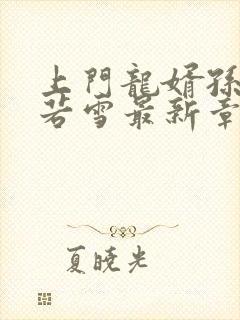 上門龍婿孫
若雪最新章
夏曉光